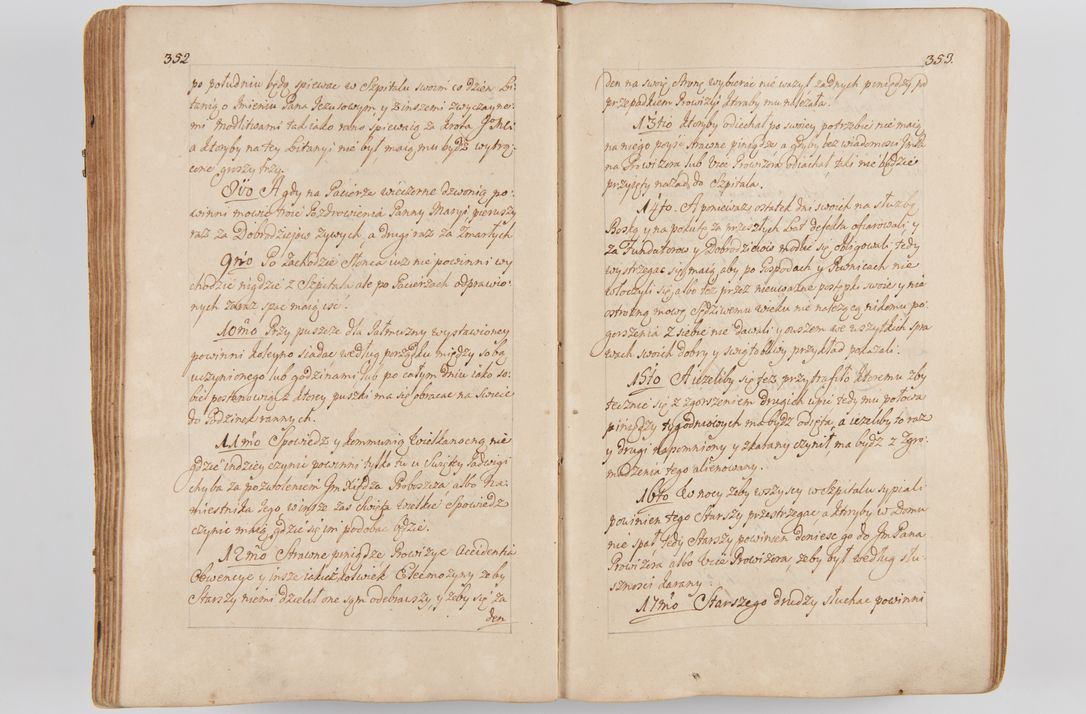 352
po południu będą spiewac w Szpitalu swoim co dzien Li-
tanią o Imieniu Pana Jezusowym y z inszemi zwyczayne-
mi Modlitwami tak iako rano spiewaią za Krola Jo Mci
a ktoryby na tey Litanyi nie był maią mu bydz wytrą-
cone groszy trzy.
8vo A gdy na Pacierze wieczorne dzwonią po-
winni mowic troie Pozdrowienia Panny Maryi pierwszy
raz za Dobrodziejow żywych, a drugi raz za Zmarłych
9no Po Zachodzie Słonca iuz nie powinni wy
chodzic nigdzie z Szpitala ale po Pacierzach odprawio-
nych zaraz spac maią isc.
10mo Przy puszce dla Jałmuzny wystawioney
powinni koleyno siadac według porządku między sobą
uczynionego lub godzinami lub po całym dniu iako so-
bie postanowią z ktorey puszki ma się obracac na swiece
do Godzinek rannych.
11mo Spowiedz y kommunią Wielkanocną nie
gdzie indziey czynic powinni tylko tu u Swiętey Jadwigi
chyba za pozwoleniem Jm Xiędza Proboszcza albo Na-
miestnika Jego w insze zas Swięta wszelkie Spowiedz
czynic maią gdzie się im podobac będzie.
12mo Strawne pieniądze Prowizye Accidentia
Obwencye y insze iakiezkolwiek Eleemozyny zeby
Starszy niemi dzielił one sam odebrawszy, y zeby się za
den
353.
den na swoię stronę wybierac nie wazył zadnych pieniędzy pod
przepadkiem Prowizyi ktoraby mu nalezała.
13tio Ktoryby odiechał po swoiey potrzebie nie maią
na niego poysc strawne pieniądze a gdyby bez wiadomosci Jm Pa-
na Prowizora lub Vice Prowizora odiachał taki nie będzie
przyięty nazad do Szpitala.
14to. A poniewasz ostatek dni swoich na słuzbę
Boską y na pokutę za przeszłych Lat defekta ofiarowali y
za Fundatorow y Dobrodzieiow modlic się obligowali tedy
wystrzegac się maią aby po Gospodach y Piwnicach nie
włoczyli się albo tez przez nieuwazne postępki swoie y nie
ostrozną mowę Sędziwemu wieku nie nalezącą nikomu po-
gorszenia z siebie nie dawali y owszem we wszytkich spra
wach swoich dobry y swiątobliwy przykład pokazali.
15to A iezeliby się tesz przytrafiło ktoremu zby
tecznie się z zgorszeniem drugich upic tedy mu połowa
pieniędzy tygodniowych ma bydz odięta, a iezeliby to raz
y drugi napomniony y zkarany czynił, ma bydz z Zgro-
madzenia tego alienowany.
16to W nocy zeby wszyscy w Szpitalu sypiali
powinien tego Starszy przestrzegac, a ktoryby w Domu
nie spał, tedy Starszy powinien doniesc go do Jm Pana
Prowizora albo Vice Prowizora, zeby był według słu-
sznosci karany.
17mo Starszego drudzy słuchac powinni